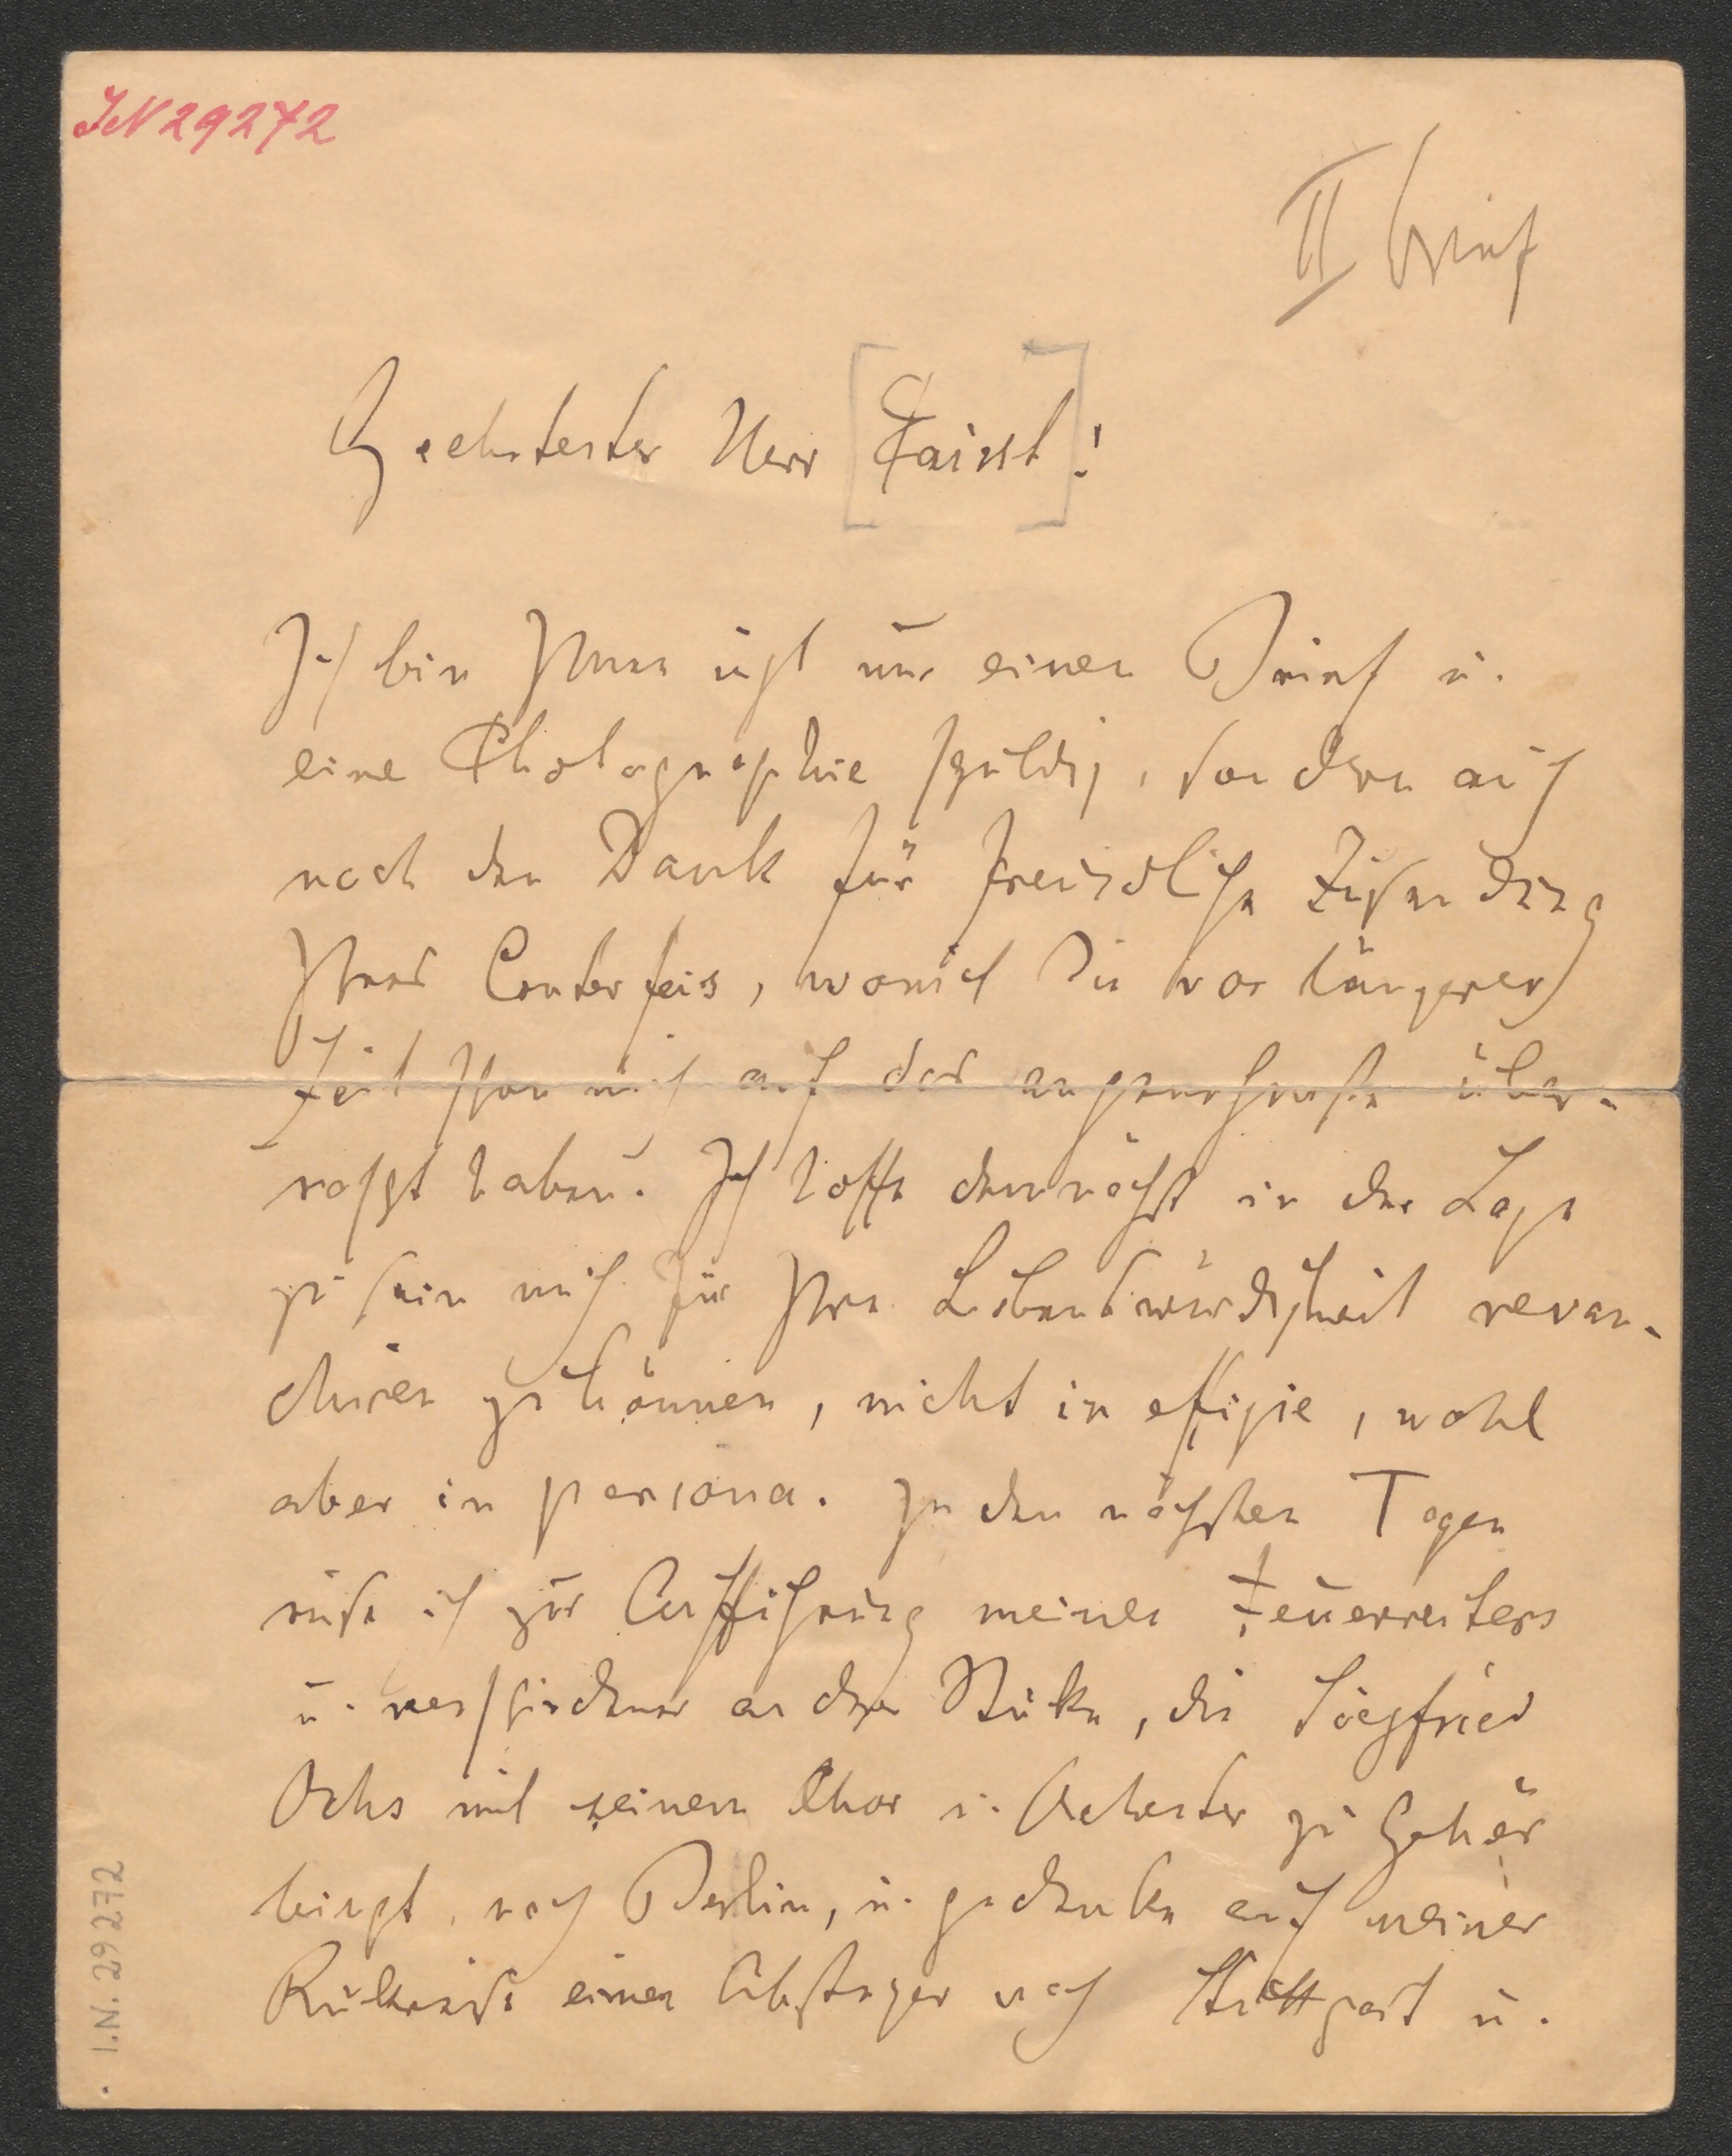 IN 29272
II Brief
Geehrtester Herr [Faisst]!
Ich bin Ihnen nicht nur einen Brief u.
eine Photographie schuldig, sondern auch
noch den Dank für freundliche Zusendung
Ihres Conterfeis, womit Sie vor längerer
Zeit schon mich auf das angenehmste über-
rascht haben. Ich hoffe demnächst in der Lage
zu sein mich für Ihre Liebenswürdigkeit revan-
chiren zu können, nicht in effigie, wohl
aber in persona. In den nächsten Tagen
reise ich zur Aufführung meines Feuerreiters
u. verschiedener anderer Stücke, die Siegfried
Ochs mit seinem Chor u. Orchester zu Gehör
bringt, nach Berlin, u. gedenke auf meiner
Rückreise einen Abstecher nach Stuttgart u.
I.N. 29 272